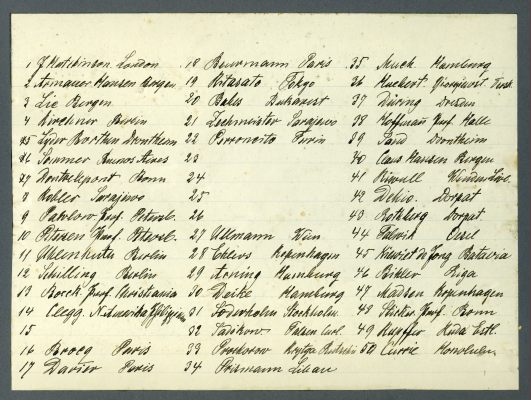 1 J. Hutchinson London
2 Armauer Hansen Bergen
3 Lie Bergen
4 Kirchner Berlin
5 Lyder Borthen Drontheim
6 Sommer Buenos Aires
7 Bonn
8 Kobler Sarajewo
9 Pawlow Prof. Petersb.
10 Petersen Prof. Petersb.
11 Uhlenhuth Berlin
12 Schilling Berlin
13 Boeck Prof. Christiania
14 Clegg
15
16 Brocq Paris
17 Darier Paris
18 Beurmann Paris
19 Kitasato Tokyo
20 Babes Bukarest
21 Zechmeister Sarajewo
22 Perroncito Turin
23
24
25
26
27 Ullmann Wien
28 Ehlers Kopenhagen
29 Arning Hamburg
30 Deike Hamburg
31 Söderholm Stockholm
32
33
34 Prismann Libau
35 Much Hamburg
36
37 Düring Dresden
38 Hoffmann Prof. Halle
39 Sand Drontheim
40 Claus Hansen Bergen
41 Kiwull
42 Dehio Dorpat
43 Rothberg Dorpat
44 Talwik Oesel
45 Nauset de Jong Batavia
46 Riga
47 Madsen Kopenhagen
48 Prof. Bonn
49 Kupffer
50 Currie Honolulu